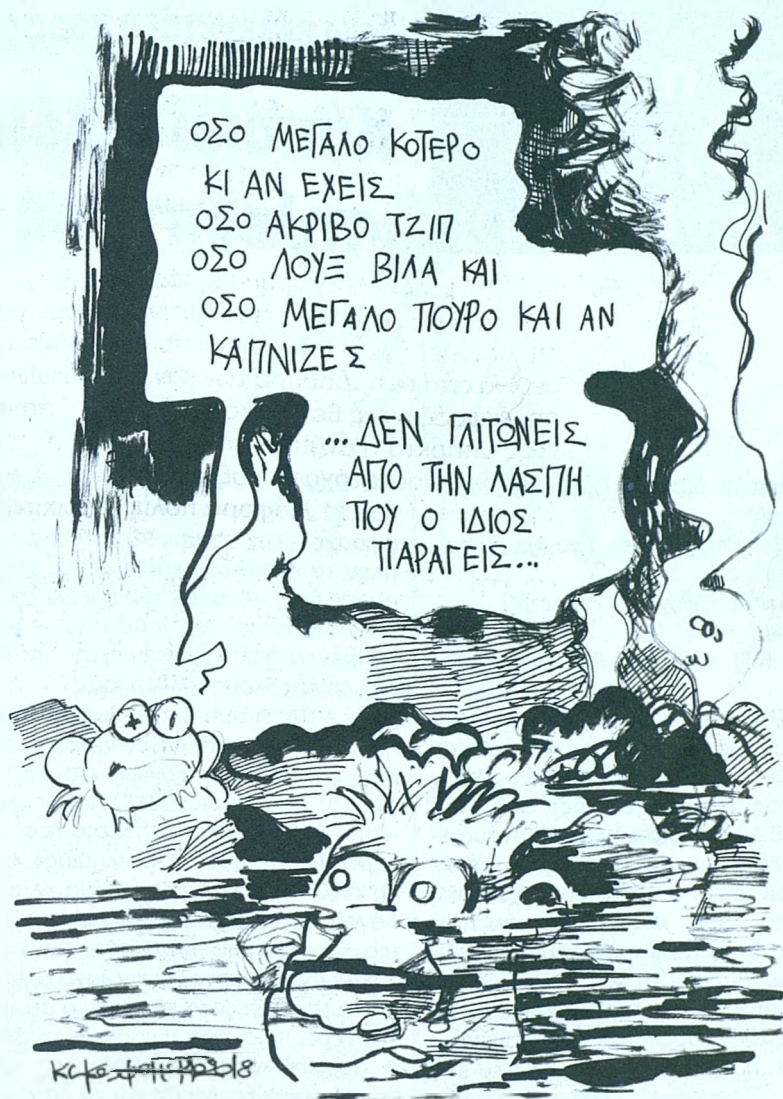 ΟΣΟ ΜΕΓΑΛΟ ΚΟΤΕΡΟ
ΚΙ ΑΝ ΕΧΕΙΣ
ΟΣΟ ΑΚΡΙΒΟ ΤΖΙΠ
ΟΣΟ ΛΟΥΞ ΒΙΛΑ ΚΑΙ
ΟΣΟ ΜΕΓΑΛΟ ΠΟΥΡΟ ΚΑΙ ΑΝ
ΚΑΠΝΙΖΕΣ
...ΔΕΝ ΓΛΙΤΩΝΕΙΣ
ΑΠΟ ΤΗΝ ΛΑΣΠΗ
ΠΟΥ Ο ΙΔΙΟΣ
ΠΑΡΑΓΕΙΣ...